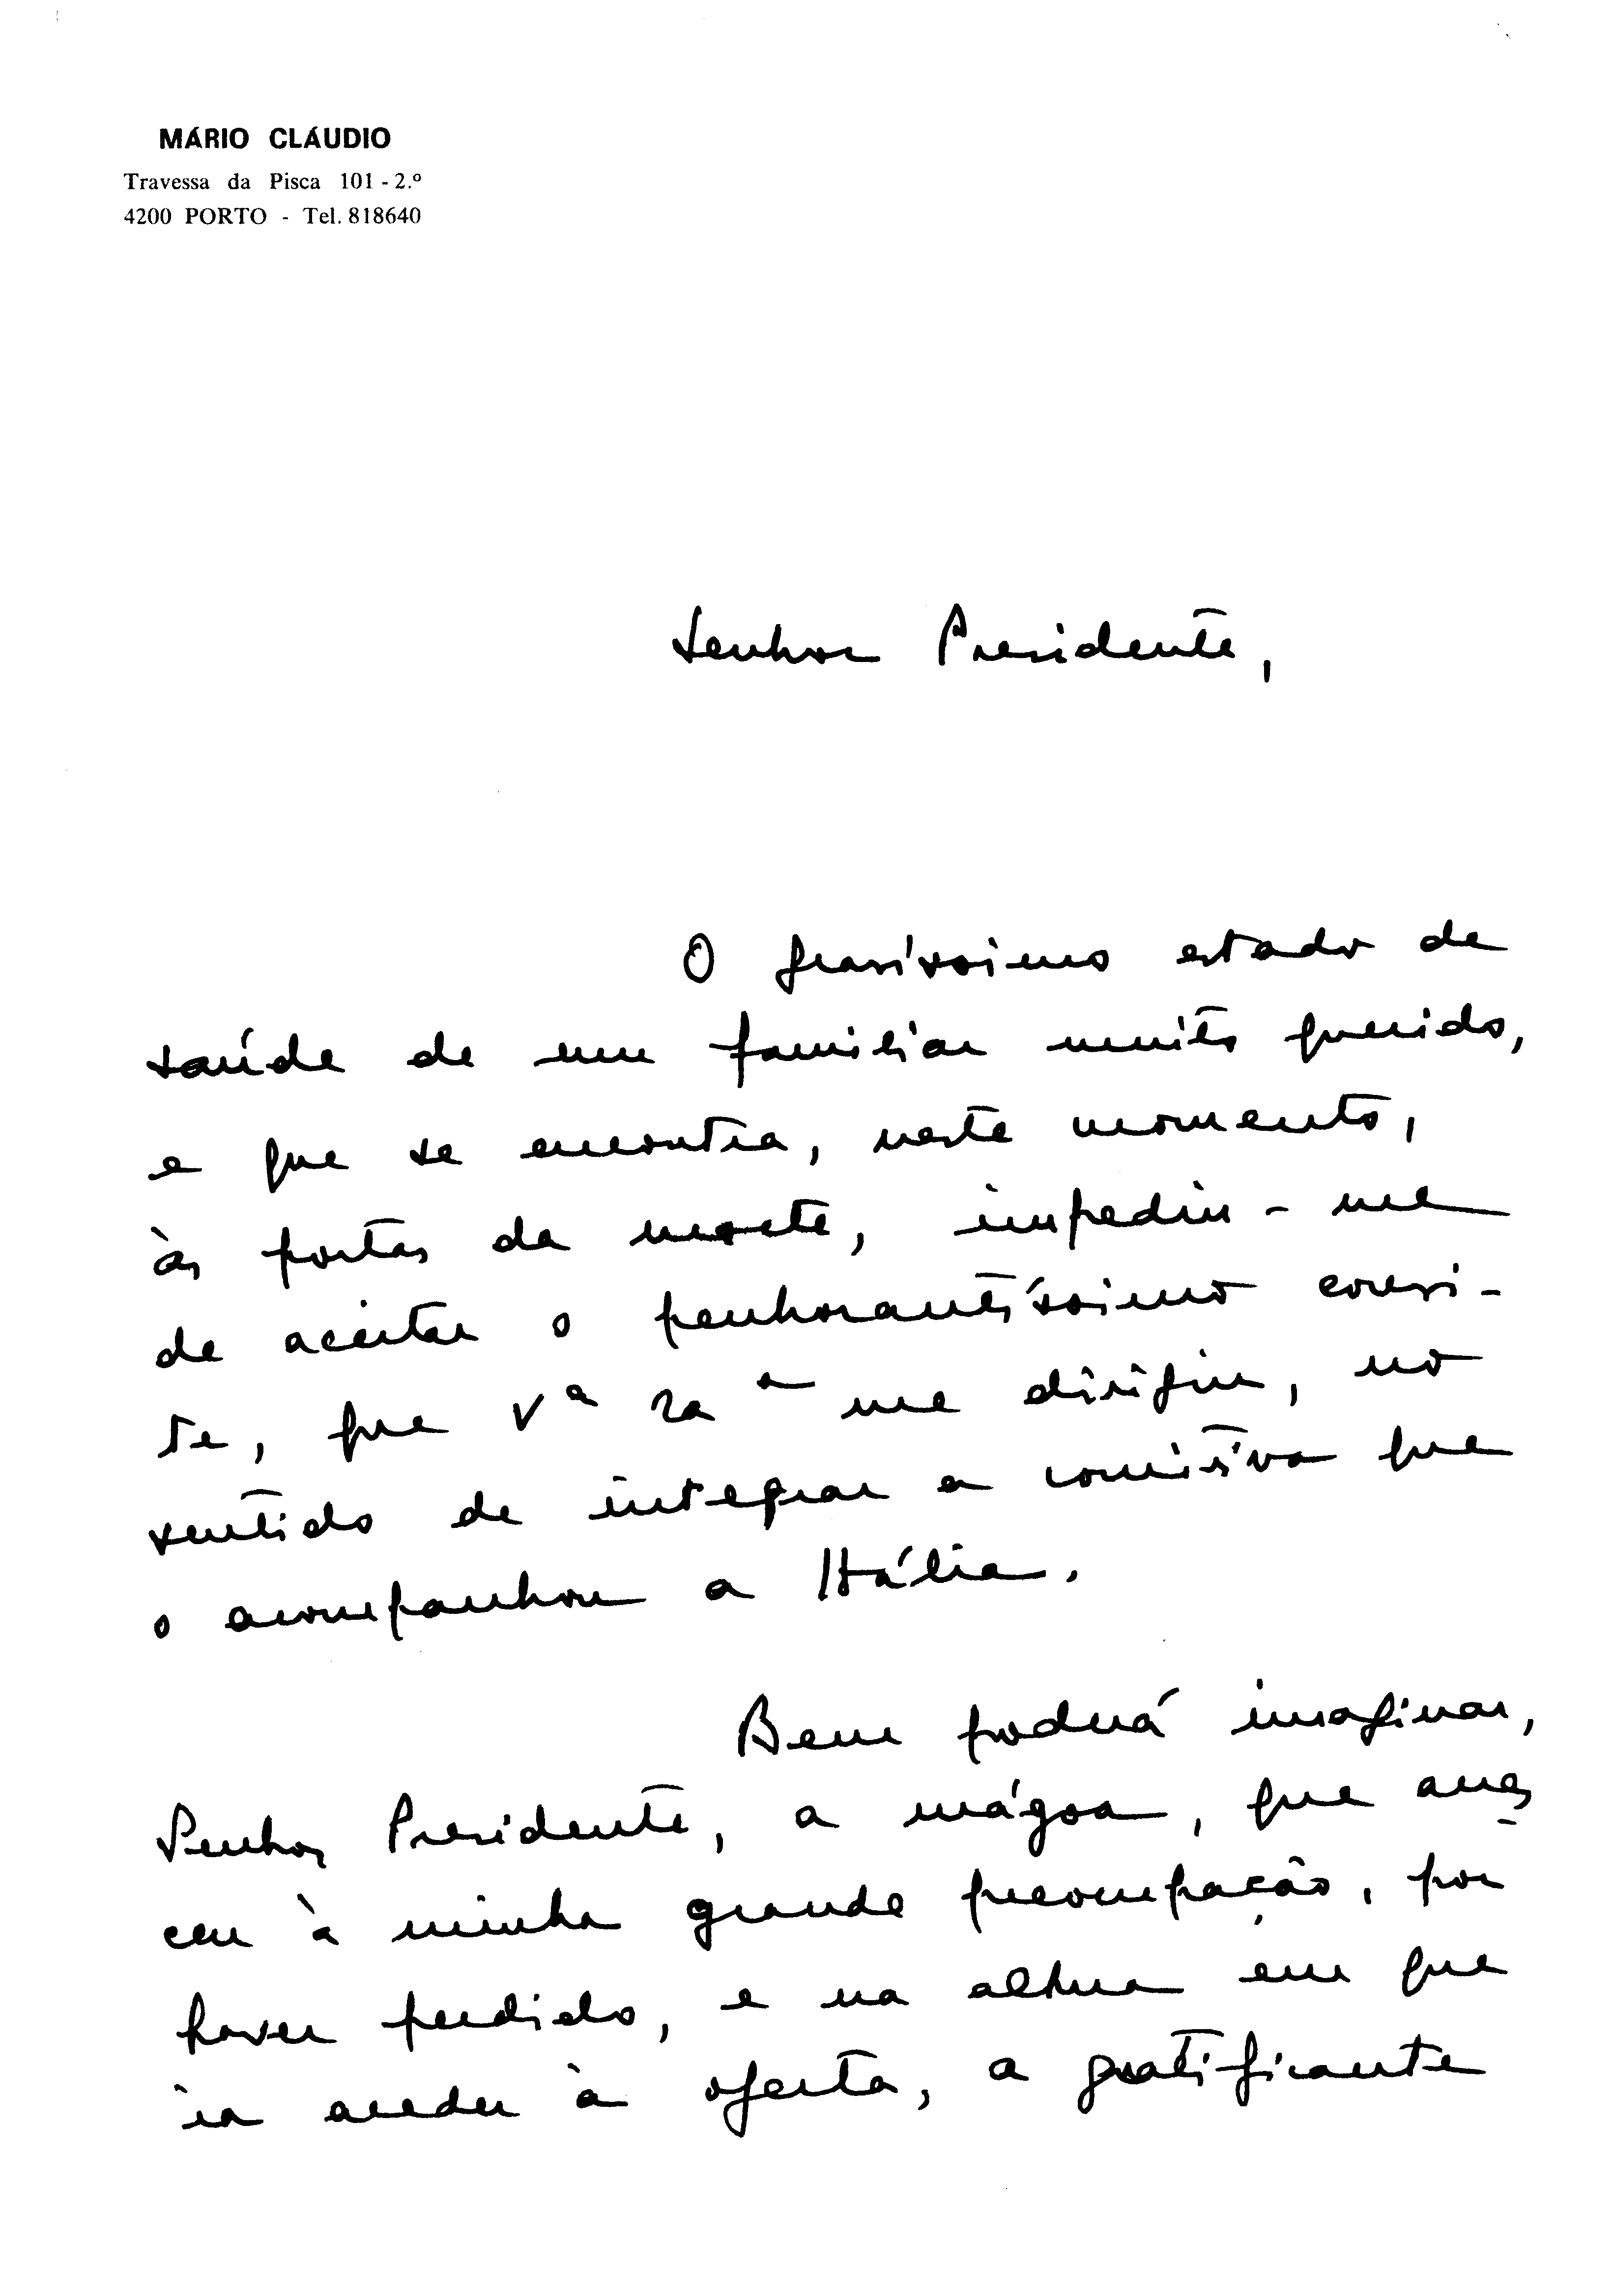 MÁRIO CLÁUDIO
Travessa da Pisca 101 - 2.º
4200 PORTO - Tel. 818640
Senhor Presidente,
O gravíssimo estado de
saúde de um familiar muito querido,
e que se encontra, neste momento,
às portas da morte, impediu-me
de aceitar o penhorantíssimo convi-
te, que Vª Exª me dirigiu, no
sentido de integrar a comitiva que
o acompanhou a Itália.
Bem poderá imaginar,
Senhor Presidente, a mágoa, que acres
ceu à minha grande preocupação, por
haver perdido, e na altura em que
ia aceder à oferta, a gratificante